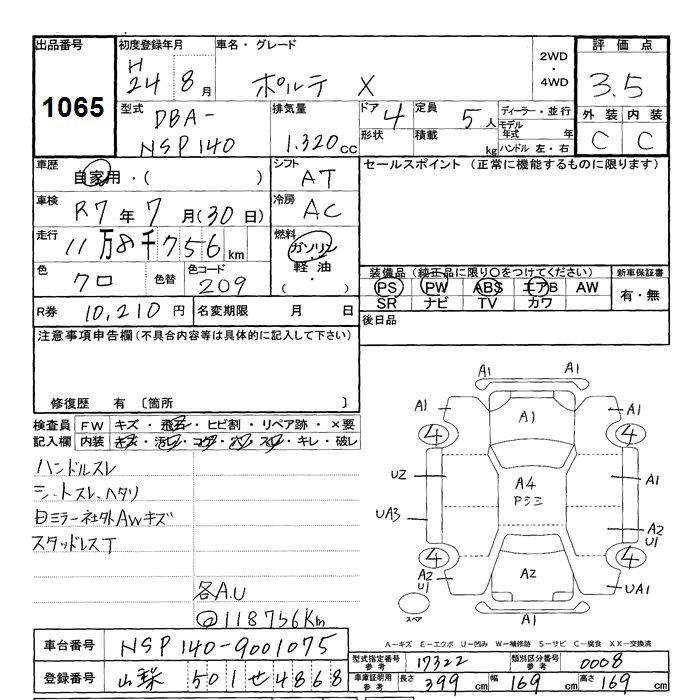 出品番号
1065
初度登録年月
H
24 8 月
車名・グレード
ポルテ X
2WD
・
4WD
評価点
3.5
外装 内装
C C
型式
DBA-
NSP140
排気量
1.320 cc
ドア 4
定員 5 人
形状
積載 kg
ディーラー・並行
モデル年式 年
ハンドル 左・右
車歴
自家用・( )
シフト
AT
車検
R7 年 7 月(30 日)
冷房
AC
走行
11 万 8 千 756 km
燃料
ガソリン
軽油
・( )
色
クロ
色替
色コード
209
R券 10,210 円
名変期限 月 日
セールスポイント (正常に機能するものに限ります)
装備品(純正品に限り〇をつけてください)
PS PW ABS エアB AW
SR ナビ TV カワ
新車保証書
有・無
後日品
注意事項申告欄(不具合内容等は具体的に記入して下さい)
修復歴 有 〔箇所 〕
検査員 FW キズ・飛石・ヒビ割・リペア跡・×要
記入欄 内装 キズ・汚レ・コゲ・穴・スレ・キレ・破レ
ハンドルスレ
シートスレ、ヘタリ
日ミラー社外AWキズ
スタッドレスT
各A.U
@118756Km
A1
A1 A1 A1
4 4
U2 A4 A1
Pシミ
UA3 A2
U1
4 4
A2 A2 UA1
U1
スペア
A1
A-キズ E-エクボ U-凹み W-補修跡 S-サビ C-腐食 XX-交換済
車台番号 NSP140-9001075
登録番号 山梨 501 せ 4868
型式指定番号 参考 17322
類別区分番号 参考 0008
車庫証明用 参考 長さ 399 cm 幅 169 cm 高さ 169 cm